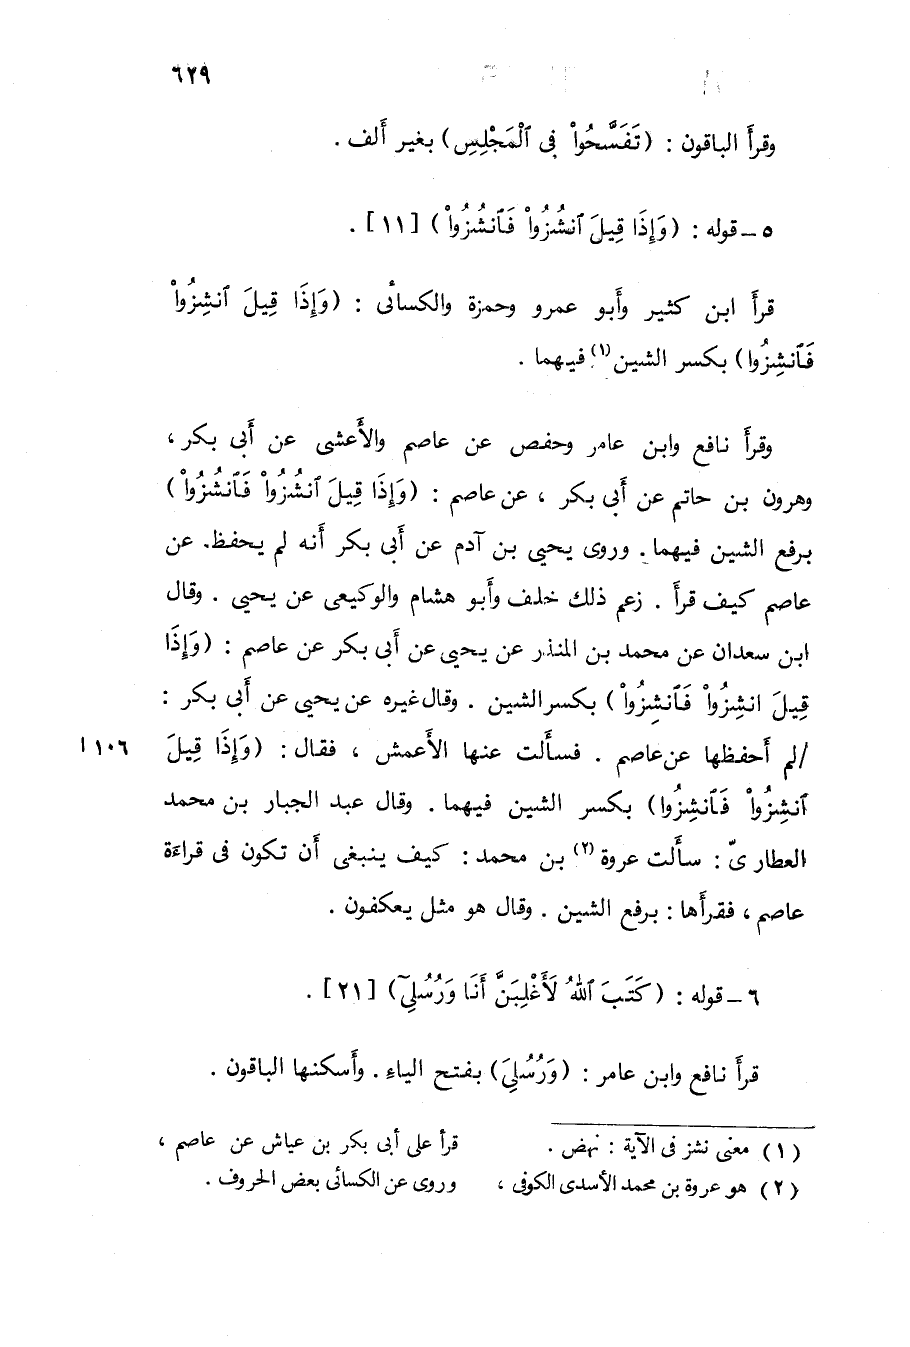 ٦٢٩
وقرأ الباقون : (تَفَسَّحُواْ فِى ٱلْمَجْلِسِ) بغير ألف .
٥ – قوله : (وَإِذَا قِيلَ ٱنشُزُواْ فَٱنشُزُواْ) [١١] .
قرأ ابن كثير وأبو عمرو وحمزة والكسائى : (وَإِذَا قِيلَ ٱنشِزُواْ
فَٱنشِزُوا) بكسر الشين (١) فيهما .
وقرأ نافع وابن عامر وحفص عن عاصم والأعشى عن أبى بكر ،
وهرون بن حاتم عن أبى بكر ، عن عاصم : (وَإِذَا قِيلَ ٱنشُزُواْ فَٱنشُزُواْ)
برفع الشين فيهما . وروى يحيى بن آدم عن أبى بكر أنه لم يحفظ عن
عاصم كيف قرأ . زعم ذلك خلف وأبو هشام والوكيعى عن يحيى . وقال
ابن سعدان عن محمد بن المنذر عن يحيى عن أبى بكر عن عاصم : (وَإِذَا
قِيلَ انشِزُواْ فَٱنشِزُواْ) بكسر الشين . وقال غيره عن يحيى عن أبى بكر :
/لم أحفظها عن عاصم . فسألت عنها الأعمش ، فقال : (وَإِذَا قِيلَ ١٠٦ ا
ٱنشِزُواْ فَٱنشِزُوا) بكسر الشين فيهما . وقال عبد الجبار بن محمد
العطارىّ : سألت عروة (٢) بن محمد : كيف ينبغى أن تكون فى قراءة
عاصم ، فقرأها : برفع الشين . وقال هو مثل يعكفون .
٦ – قوله : (كَتَبَ ٱللهُ لَأَغْلِبَنَّ أَنَا وَرُسُلِىٓ) [٢١] .
قرأ نافع وابن عامر : (وَرُسُلِىَ) بفتح الياء . وأسكنها الباقون .
(١) معنى نشز فى الآية : نهض .
(٢) هو عروة بن محمد الأسدى الكوفى ،
قرأ على أبى بكر بن عياش عن عاصم ،
وروى عن الكسائى بعض الحروف .